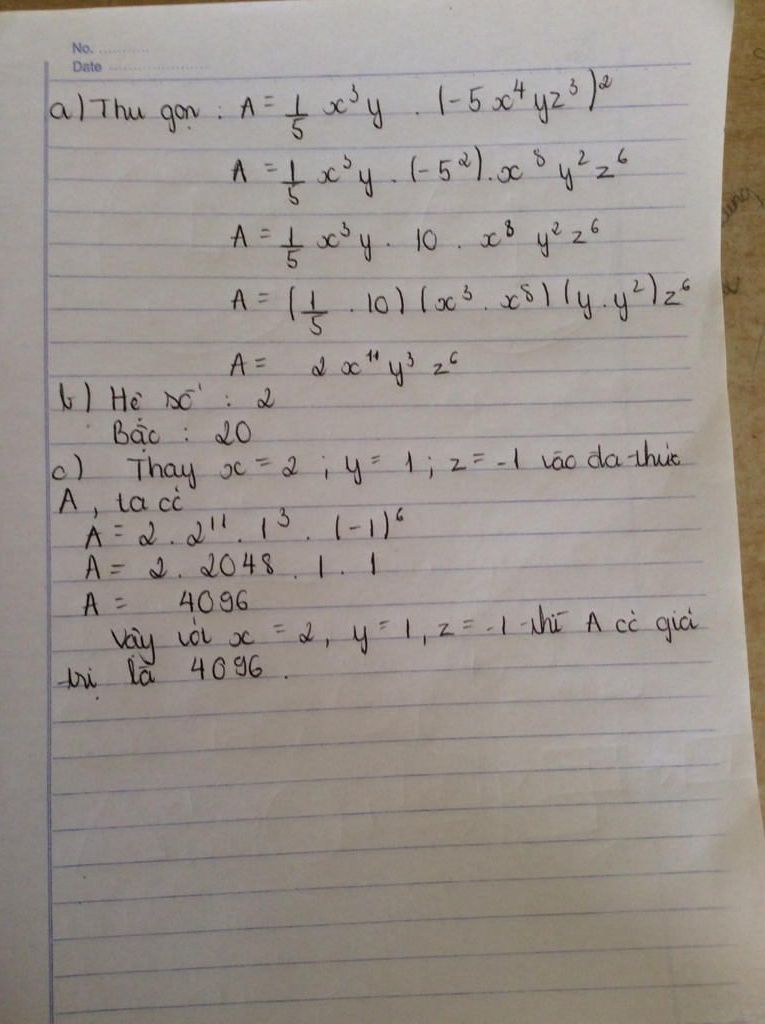 No. ............
Date ........................
a) Thu gọn : A = 1/5 x³y . (-5x⁴yz³)²
A = 1/5 x³y . (-5²) . x⁸ y² z⁶
A = 1/5 x³y . 10 . x⁸ y² z⁶
A = (1/5 . 10) (x³ . x⁸) (y . y²) z⁶
A = 2 x¹¹ y³ z⁶
b) Hệ số : 2
Bậc : 20
c) Thay x = 2 ; y = 1 ; z = -1 vào đa thức
A , ta có
A = 2 . 2¹¹ . 1³ . (-1)⁶
A = 2 . 2048 . 1 . 1
A = 4096
Vậy với x = 2, y = 1, z = -1 thì A có giá
trị là 4096 .